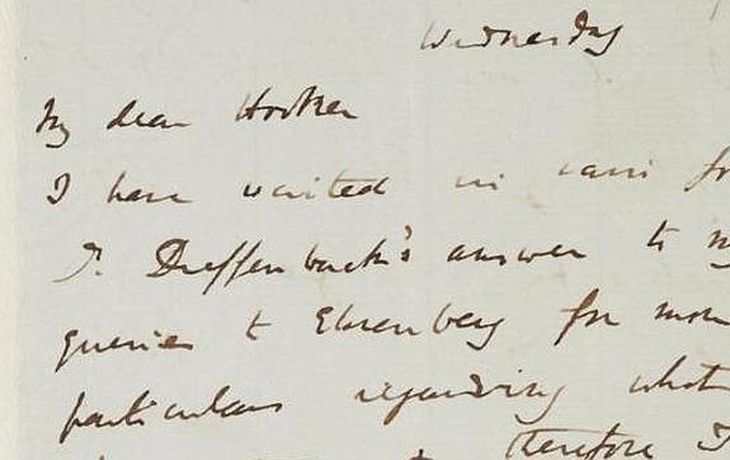 Wednesday
My dear Hooker
I have waited in vain for
Dr. Dieffenbach's answer to my
queries to Ehrenberg for more
particulars regarding what
therefore I